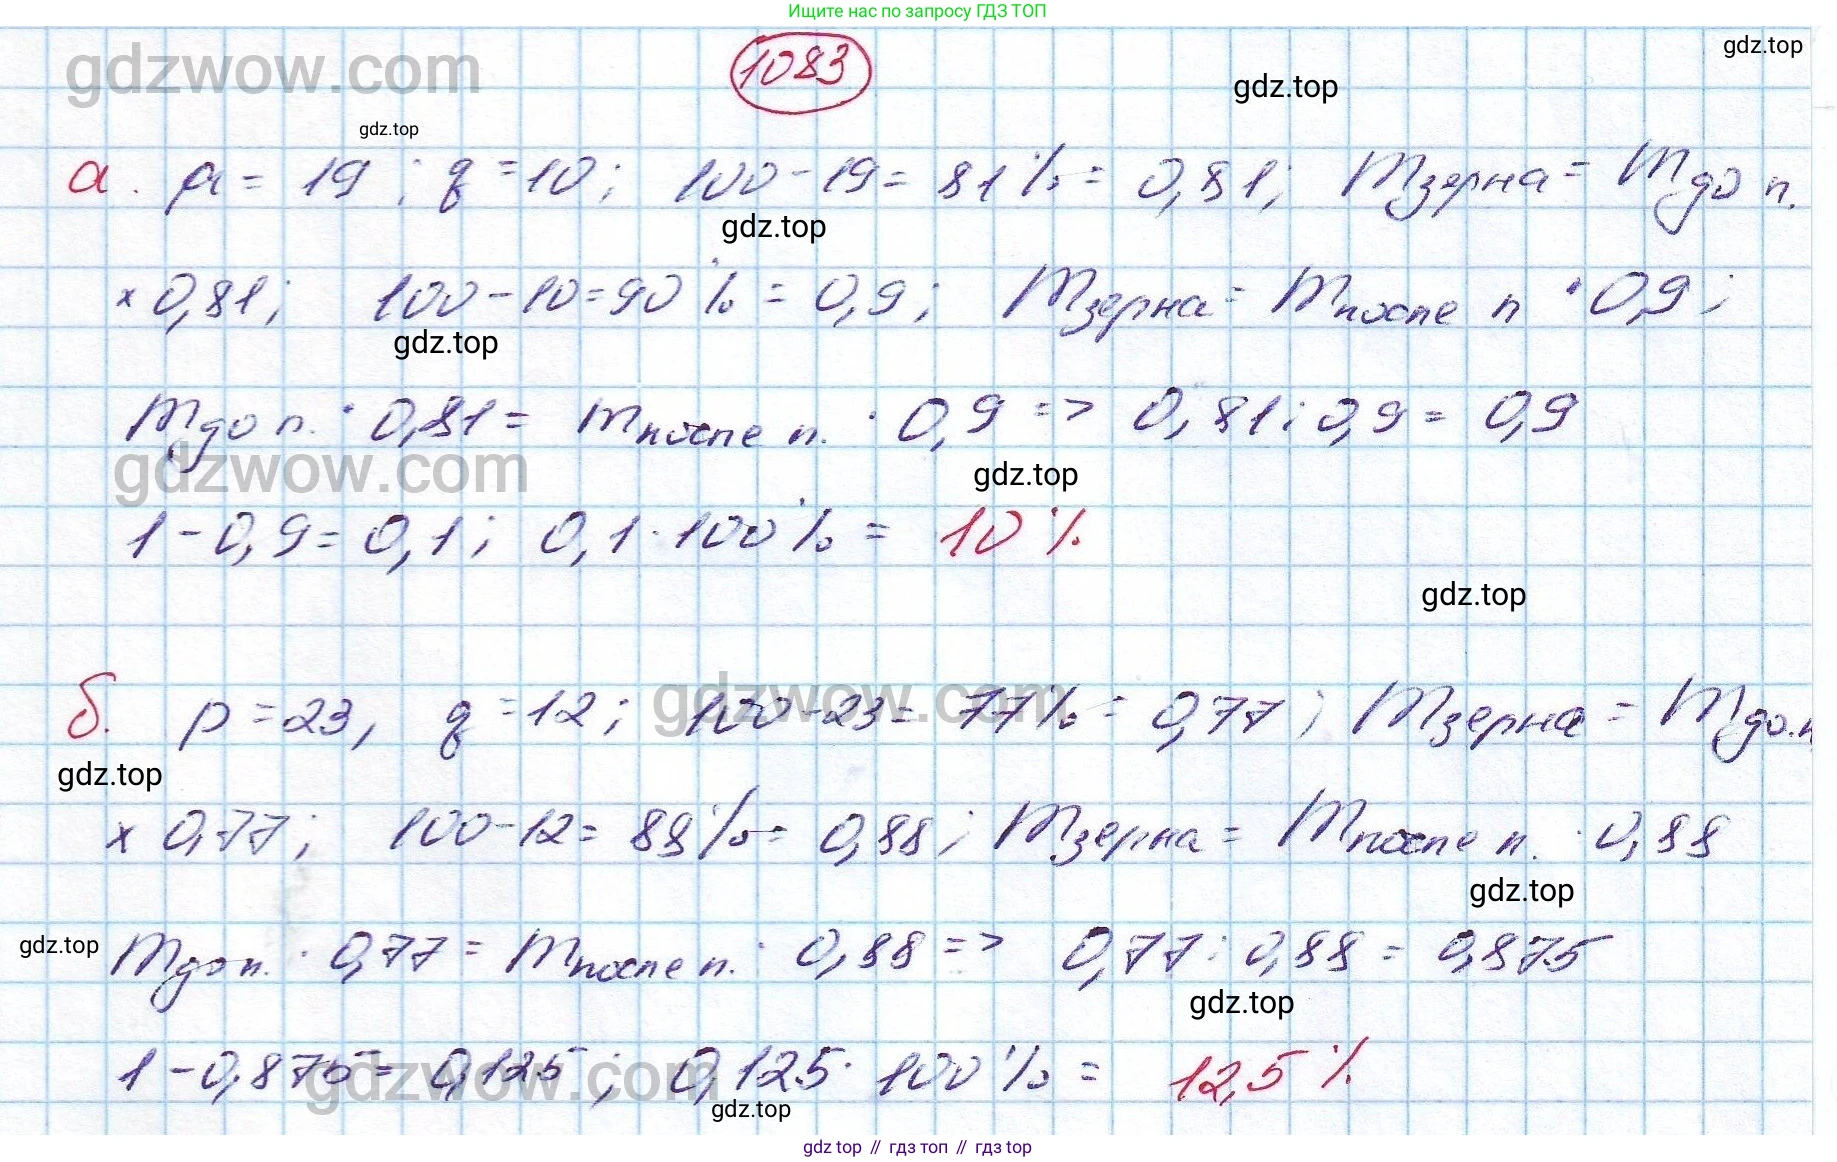 Ищите нас по запросу ГДЗ ТОП
gdz.top
gdzwow.com
1083
gdz.top
gdz.top
а. p = 19 ; q = 10 ; 100 - 19 = 81 % = 0,81; m зерна = m до п.
gdz.top
× 0,81; 100 - 10 = 90 % = 0,9 ; m зерна = m после п · 0,9 ;
gdz.top
m до п. · 0,81 = m после п. · 0,9 => 0,81 : 0,9 = 0,9
gdzwow.com
gdz.top
1 - 0,9 = 0,1 ; 0,1 · 100 % = 10 %
gdz.top
б. p = 23, q = 12 ; 100 - 23 = 77% = 0,77 ; m зерна = m до.п
gdzwow.com
gdz.top
× 0,77 ; 100 - 12 = 88 % = 0,88 ; m зерна = m после п. · 0,88
gdz.top
gdz.top
m до п. · 0,77 = m после п. · 0,88 => 0,77 : 0,88 = 0,875
gdz.top
1 - 0,875 = 0,125 ; 0,125 · 100 % = 12,5 %
gdzwow.com
gdz.top
gdz top // гдз топ // гдз top